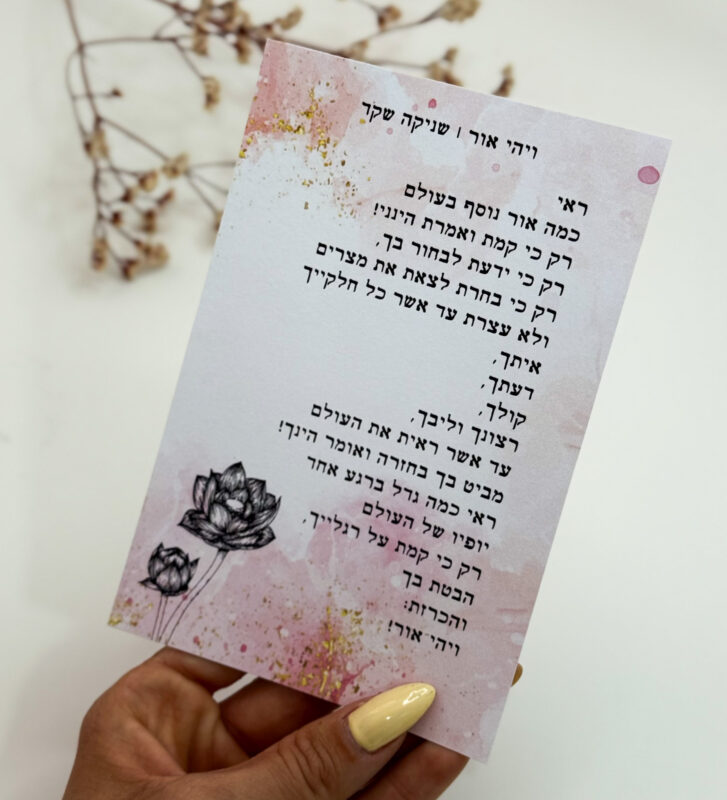 ויהי אור | שניקה שקד
ראי
כמה אור נוסף בעולם
רק כי קמת ואמרת הינני!
רק כי ידעת לבחור בך,
רק כי בחרת לצאת את מצרים
ולא עצרת עד אשר כל חלקייך
איתך,
דעתך,
קולך,
רצונך וליבך,
עד אשר ראית את העולם
מביט בך בחזרה ואומר הינך!
ראי כמה גדל ברגע אחד
יופיו של העולם
רק כי קמת על רגלייך,
הבטת בך
והכרזת:
ויהי־אור!